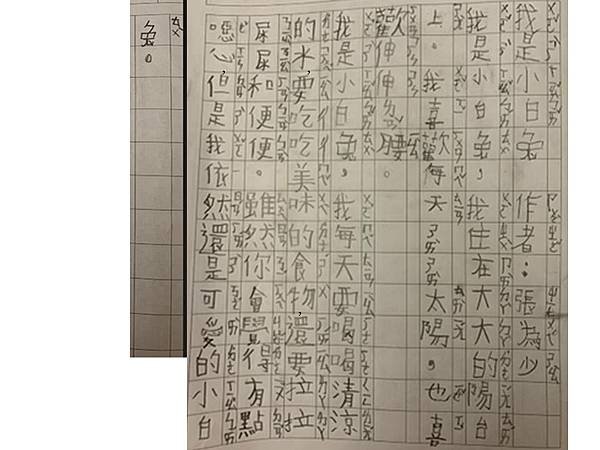 我是小白兔 作者：張為少
我是小白兔，我住在大大的陽台
上。我喜歡每天ㄕㄞˋ太陽，也喜
歡伸ㄌㄢˇ腰。
我是小白兔，我每天要喝喝清涼
的水，要吃吃美味的食物，還要拉拉
尿尿和便便。雖然你會覺得有點
噁心，但是我依然還是可愛的小白
兔。